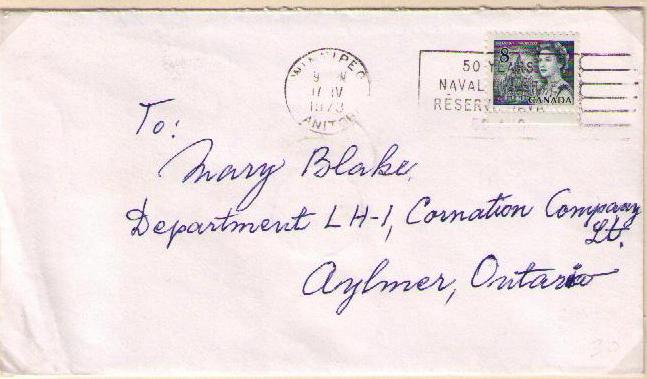 WINNIPEG
17 IV
1973
50 YEARS
NAVAL
RÉSERVE
8
CANADA
To:
Mary Blake,
Department LH-1, Cornation Company
Lt.
Aylmer, Ontario
30